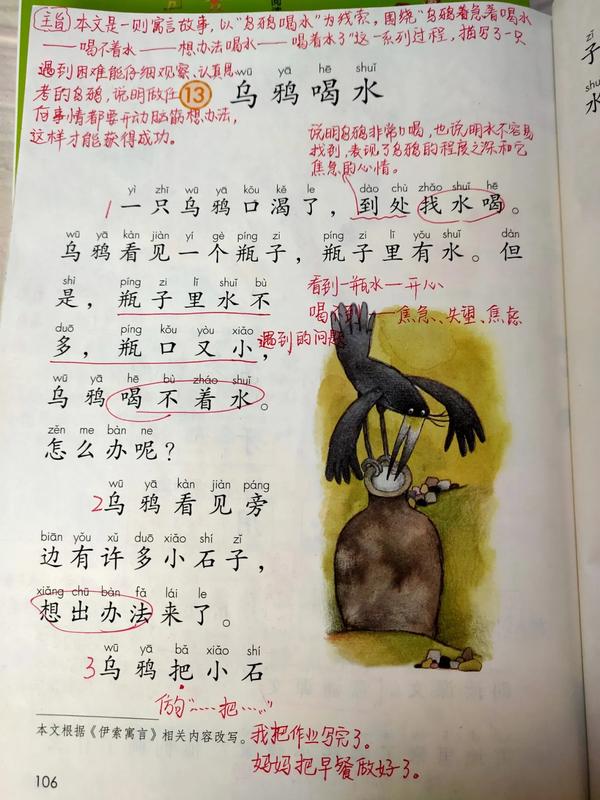 主旨 本文是一则寓言故事，以"乌鸦喝水"为线索，围绕"乌鸦着急着喝水
——喝不着水——想办法喝水——喝着水了"这一系列过程，描写了一只
遇到困难能仔细观察、认真思
考的乌鸦，说明做任
何事情都要开动脑筋想办法，
这样才能获得成功。
wū yā hē shuǐ
13 乌鸦喝水
说明乌鸦非常口渴，也说明水不容易
找到，表现了乌鸦的程度之深和它
焦急的心情。
yì zhī wū yā kǒu kě le dào chù zhǎo shuǐ hē
1 一只乌鸦口渴了，到处找水喝。
wū yā kàn jiàn yí gè píng zi píng zi lǐ yǒu shuǐ dàn
乌鸦看见一个瓶子，瓶子里有水。但
shì píng zi lǐ shuǐ bù
是，瓶子里水不
看到一瓶水—开心
喝 焦急、失望、焦虑
duō píng kǒu yòu xiǎo
多，瓶口又小，
遇到的问题
wū yā hē bù zháo shuǐ
乌鸦喝不着水。
zěn me bàn ne
怎么办呢？
wū yā kàn jiàn páng
2乌鸦看见旁
biān yǒu xǔ duō xiǎo shí zǐ
边有许多小石子，
xiǎng chū bàn fǎ lái le
想出办法来了。
wū yā bǎ xiǎo shí
3乌鸦把小石
仿句"……把……"
本文根据《伊索寓言》相关内容改写。
我把作业写完了。
妈妈把早餐做好了。
106
zǐ
子
水